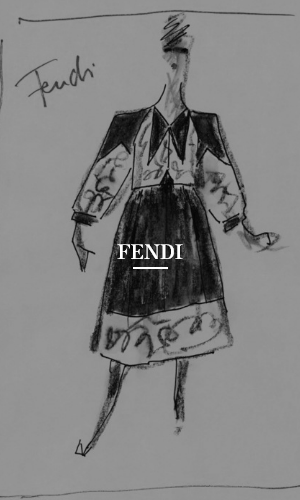 Fendi
FENDI